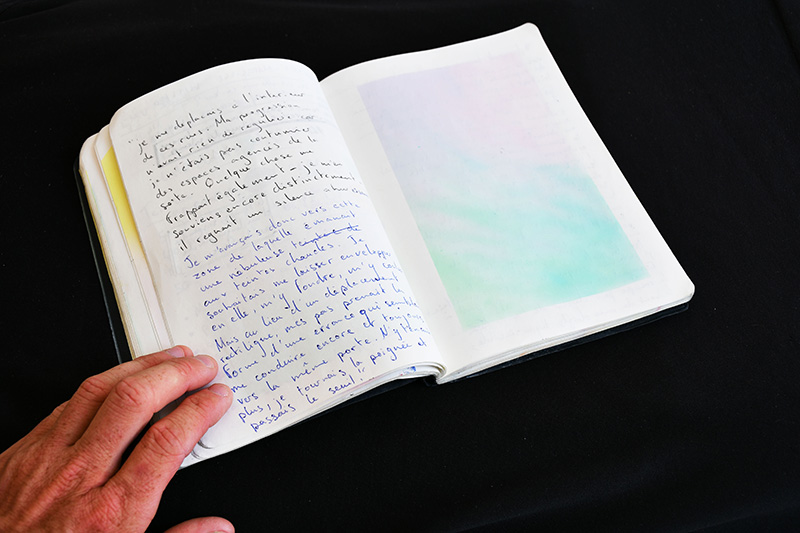 "je me déplaçais à l'intérieur
de ces rues. Ma progression
n'avait rien de régulière car
je n'étais pas coutumier
des espaces agencés de la
sorte. Quelque chose me
frappait également - je m'en
souviens encore distinctement
il régnait un silence
Je m'avançais donc vers cette
zone de laquelle émanait
une nébuleuse
aux teintes chaudes. Je
souhaitais me laisser envelopper
en elle, m'y fondre, m'y
Mais au lieu d'un déplacement
rectiligne, mes pas prenaient la
forme d'une errance qui semblait
me conduire encore et toujours
vers la même porte. N'y tenant
plus, je tournais la poignée et
passais le seuil."